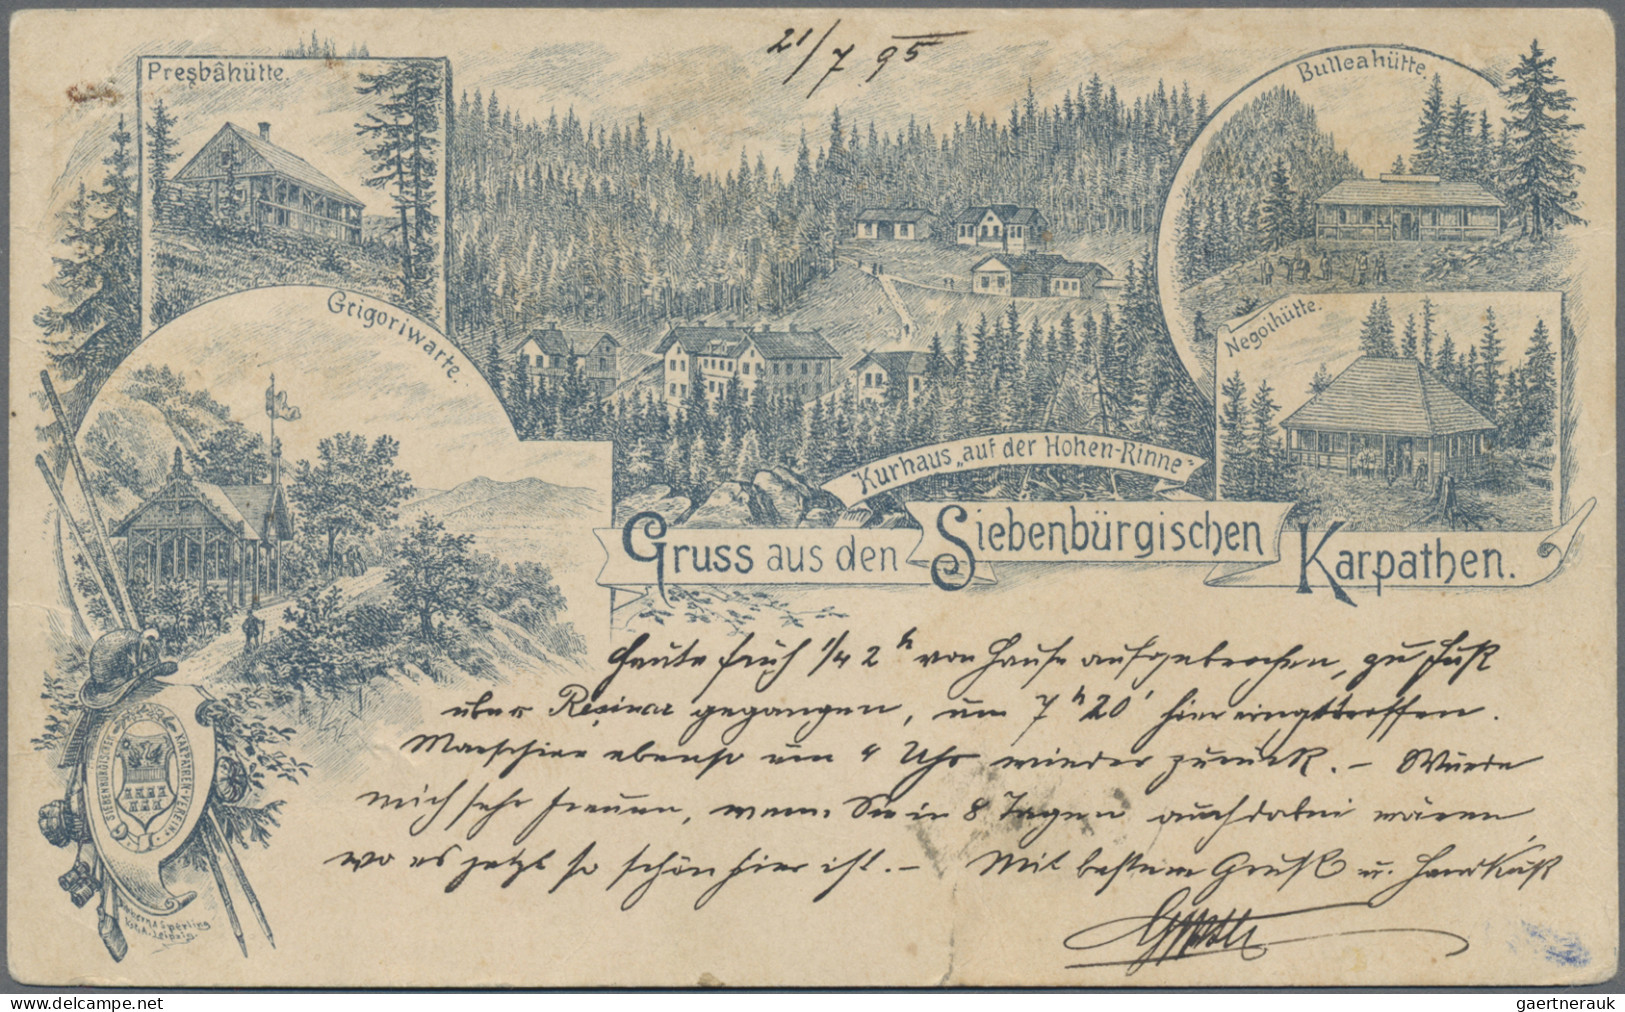 21/7 95
Preşbâhütte.
Bulleahütte.
Grigoriwarte.
Negoihütte.
Kurhaus „auf der Hohen-Rinne"
Gruss aus den Siebenbürgischen Karpathen.
Heute früh 1/4 2h von Hause aufgebrochen, zu Fuß
über Reşinar gegangen, um 7h 20' hier eingetroffen.
Marschiere ebenso um 4 Uhr wieder zurück. – Würde
mich sehr freuen, wenn Sie in 8 Tagen auch dabei wären
wo es jetzt so schön hier ist. – Mit bestem Gruß u. Handkuß
SIEBENBÜRGISCHER KARPATHEN-VEREIN
Sperling
Leipzig
www.delcampe.net
gaertnerauk